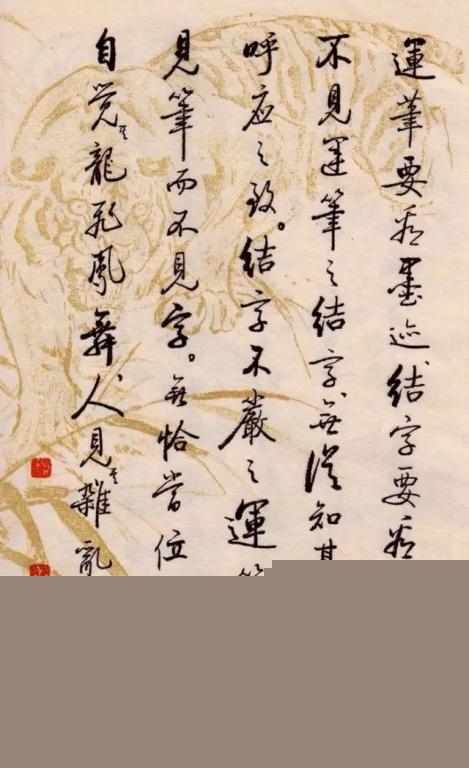 運筆要看墨迹、結字要看
不見運筆之結字無從知其
呼应之致。結字不嚴之運
見筆而不見字。無恰當位
自觉其龍飛鳳舞、人見其雜亂